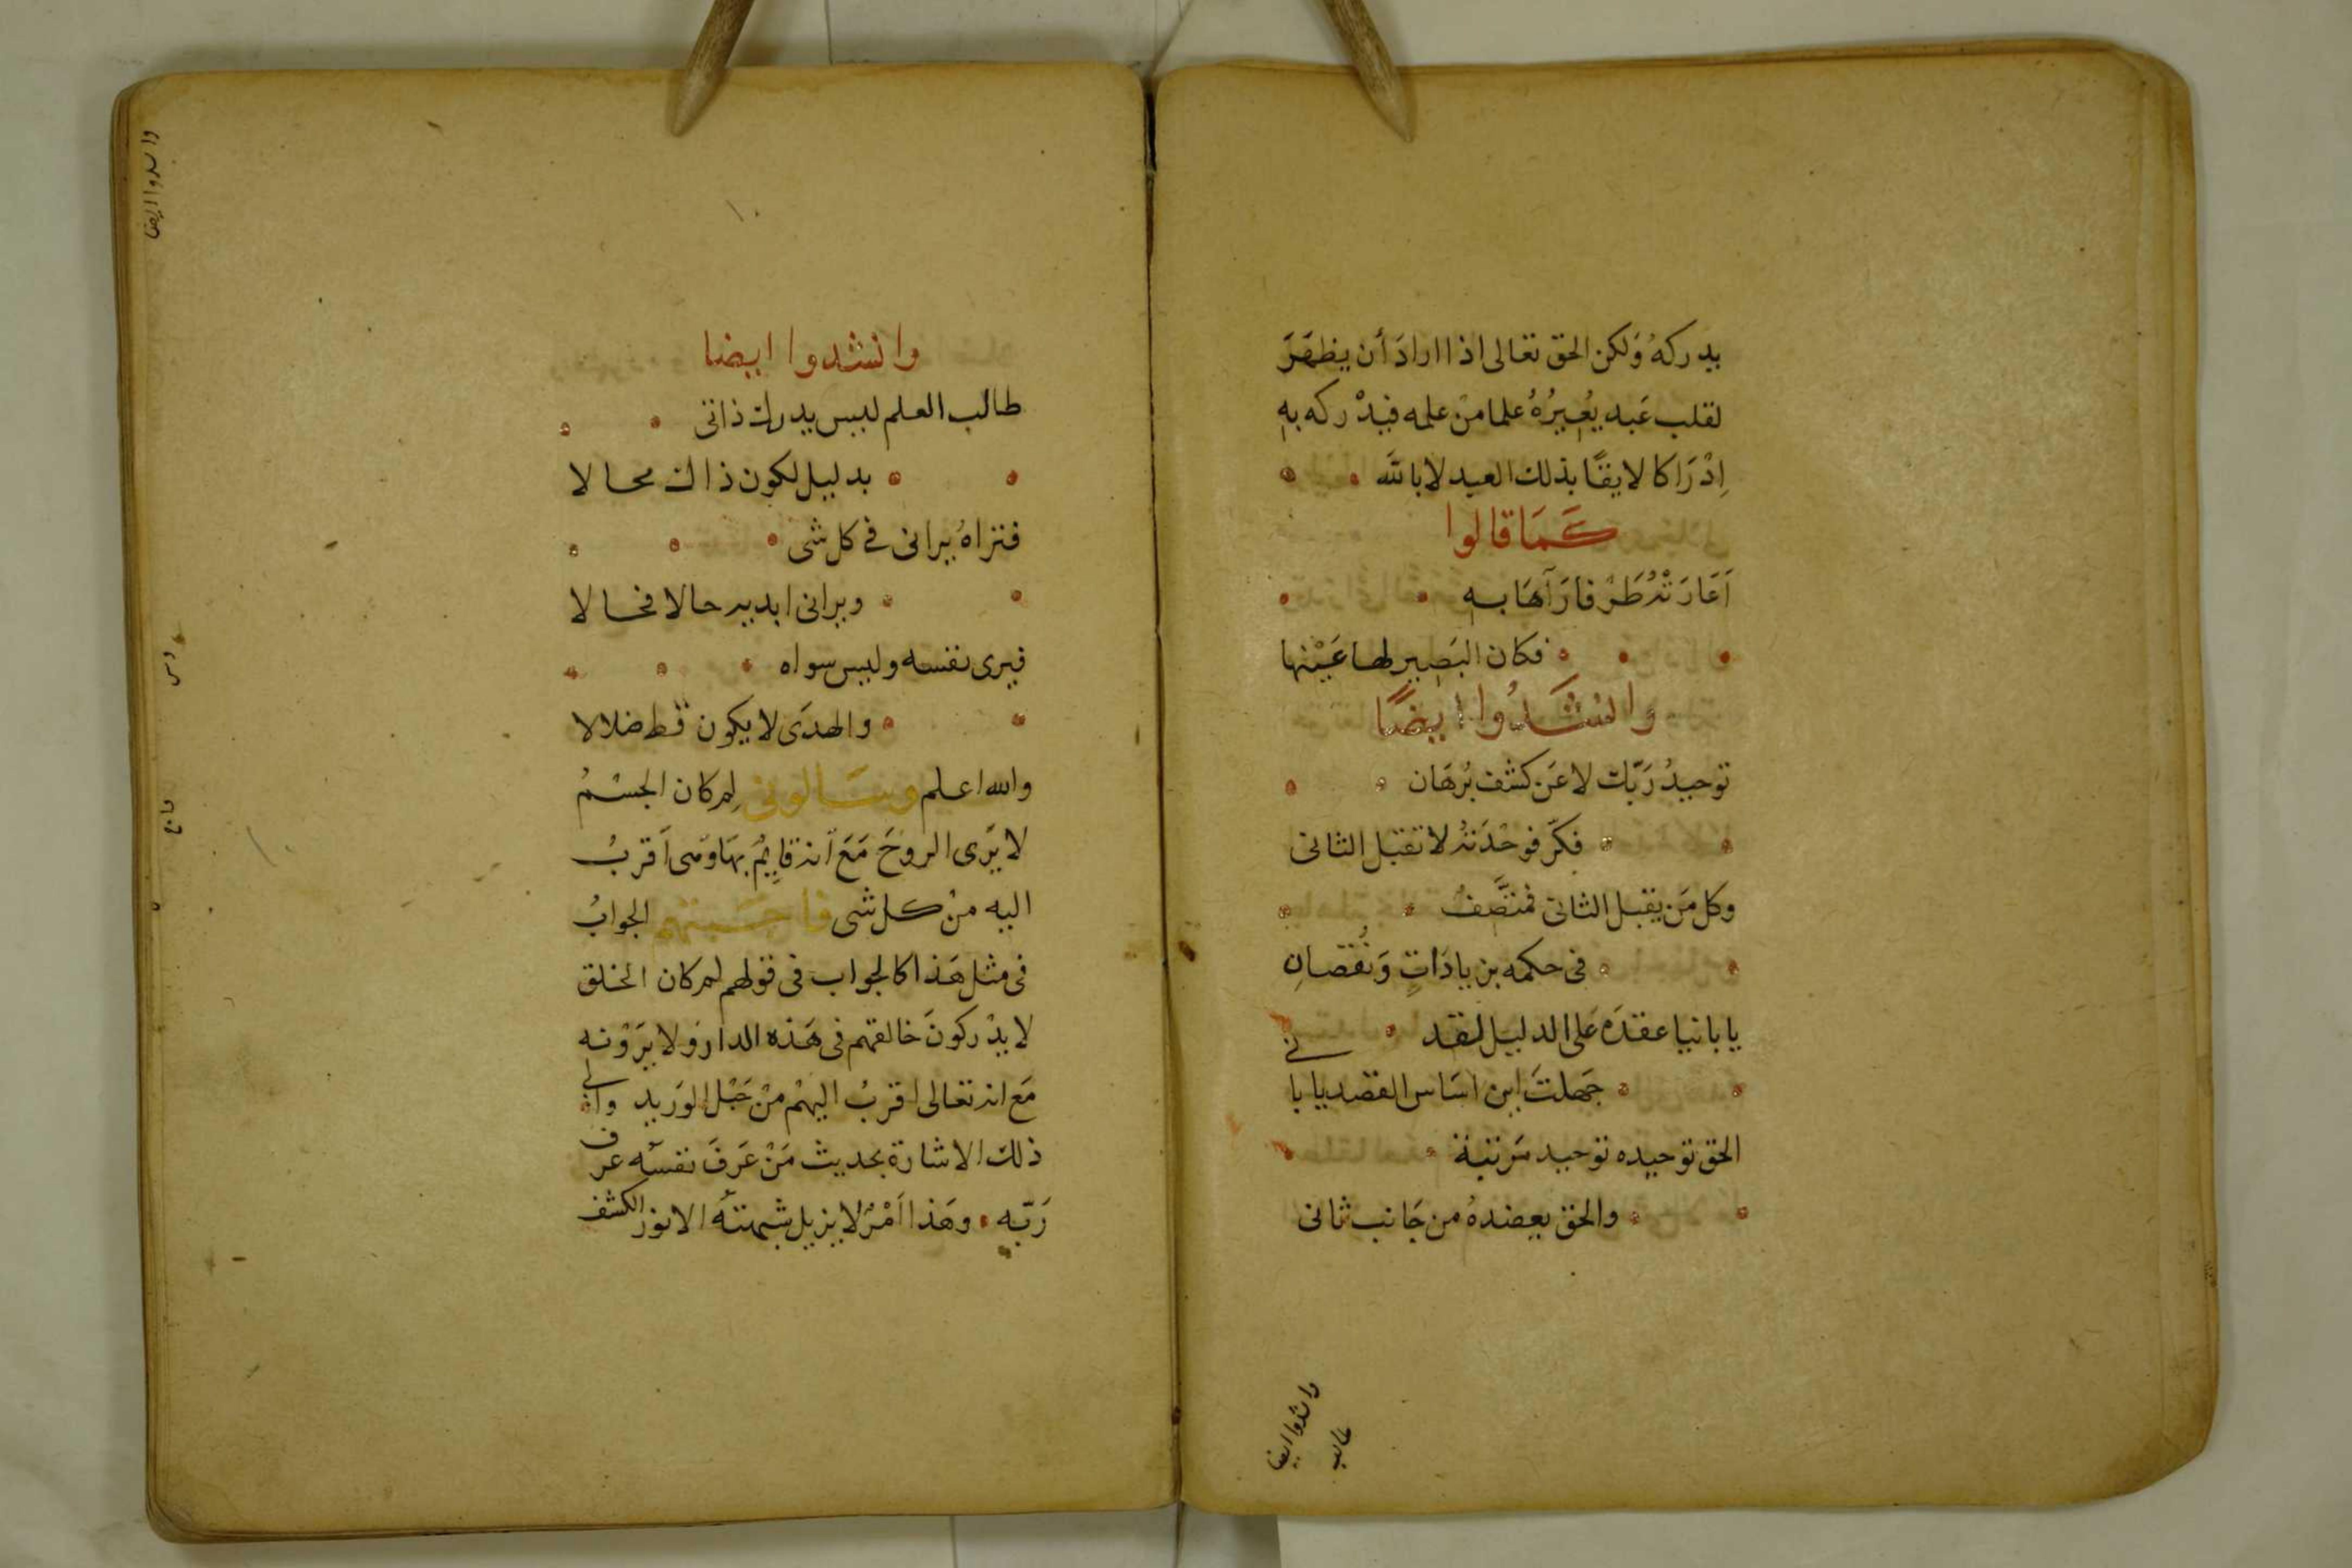 يدركهُ وَلكن الحق تعالى اذا ارادَ أن يظهَرَ
لقلب عَبد يُعِيرُهُ علما مِن علمه فيدْركه به
اِدْرَاكا لايقًا بذلك العبد لا بالله
كَمَا قالوا
اَعَارَتْهُ طَرْفا رَآهَا به
فكان البَصِير لها عَيْنها
وانشَدُوا ايضًا
توحيدُ رَبّك لا عَن كشف بُرهَان
فكّر فوحْدَته لا تقبل الثانى
وكل مَن يقبل الثانى فمتَّصفُ
فى حكمه بزيادَاتٍ وَنُقصانِ
يا بانيا عقدَه عَلى الدليل لقد
جَهلتَ اين اسَاس القصد يا بانى
الحق توحيده توحيد مَرتبة
والحق يعضدهُ من جَانب ثانى
وانشدوا ايضا
طالب
وانشدوا ايضا
طالب العلم ليس يدرك ذاتى
بدليل لكون ذاك محالا
فتراهُ يرانى فى كل شى
ويرانى ابديه حالا فحالا
فيرى نفسه وليس سواه
والهدَى لا يكون قط ضلالا
والله اعلم وسَالونى لِم كان الجسْمُ
لا يَرَى الروحَ مَعَ انه قايمٌ بهَا وهى اَقربُ
اليه منْ كل شى فاجَبتهم الجوابُ
فى مثل هَذا كالجواب فى قولهم لم كان الخلق
لا يدْركونَ خالقهم فى هَذه الدار ولا يَرَوْنه
مَع انه تعالى اقربُ اليهْم منْ حَبْل الوَريد والى
ذلك الاشارة بحديث مَنْ عَرَفَ نفسَه عرف
رَبّه وهَذا اَمْرٌ لا يزيل شبهتَه الا نور الكشف
وانشدوا ايضا